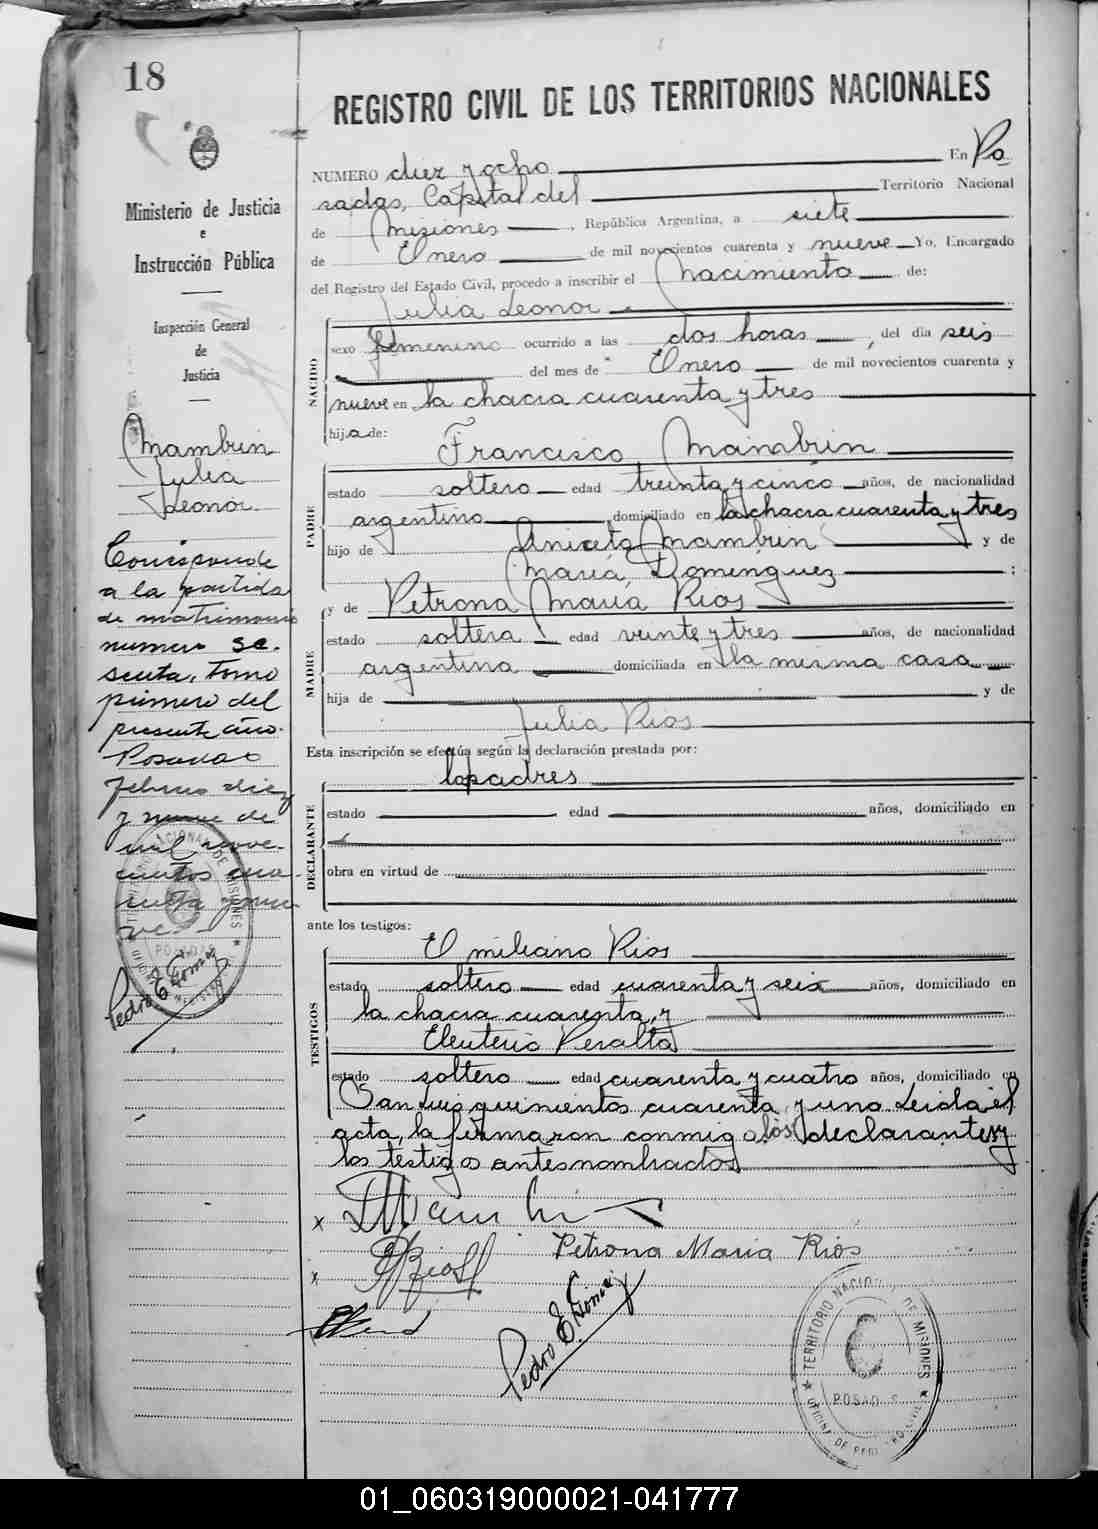 18
REGISTRO CIVIL DE LOS TERRITORIOS NACIONALES
Ministerio de Justicia
e
Instrucción Pública
Inspección General
de
Justicia
Mambrin
Julia
Leonor.
Corresponde
a la partida
de matrimonio
numero se-
senta, tomo
primero del
presente año.
Posadas
febrero diez
y nueve de
mil nove-
cientos cua-
renta y nue-
ve.
Pedro E. Gomez
NUMERO diez y ocho En Po
sadas, Capital del Territorio Nacional
de Misiones, República Argentina, a siete
de Enero de mil novecientos cuarenta y nueve Yo, Encargado
del Registro del Estado Civil, procedo a inscribir el Nacimiento de:
Julia Leonor
NACIDO
sexo femenino ocurrido a las dos horas, del día seis
del mes de Enero de mil novecientos cuarenta y
nueve en la chacra cuarenta y tres
hija de:
Francisco Mambrin
PADRE
estado soltero edad treinta y cinco años, de nacionalidad
argentino domiciliado en la chacra cuarenta y tres
hijo de Aniceto Mambrin y de
María Dominguez;
y de Petrona María Rios
MADRE
estado soltera edad veinte y tres años, de nacionalidad
argentina domiciliada en la misma casa
hija de y de
Julia Rios
Esta inscripción se efectúa según la declaración prestada por:
los padres
DECLARANTE
estado edad años, domiciliado en
obra en virtud de
ante los testigos:
Emiliano Rios
TESTIGOS
estado soltero edad cuarenta y seis años, domiciliado en
la chacra cuarenta, y
Eleuterio Peralta
estado soltero edad cuarenta y cuatro años, domiciliado en
San Luis quinientos cuarenta y uno. Leida el
acta, la firmaron conmigo los declarantes y
los testigos antes nombrados
x FMambrin
Petrona Maria Rios
x
Pedro E. Gomez
TERRITORIO NACIONAL DE MISIONES
POSADAS
01_060319000021-041777